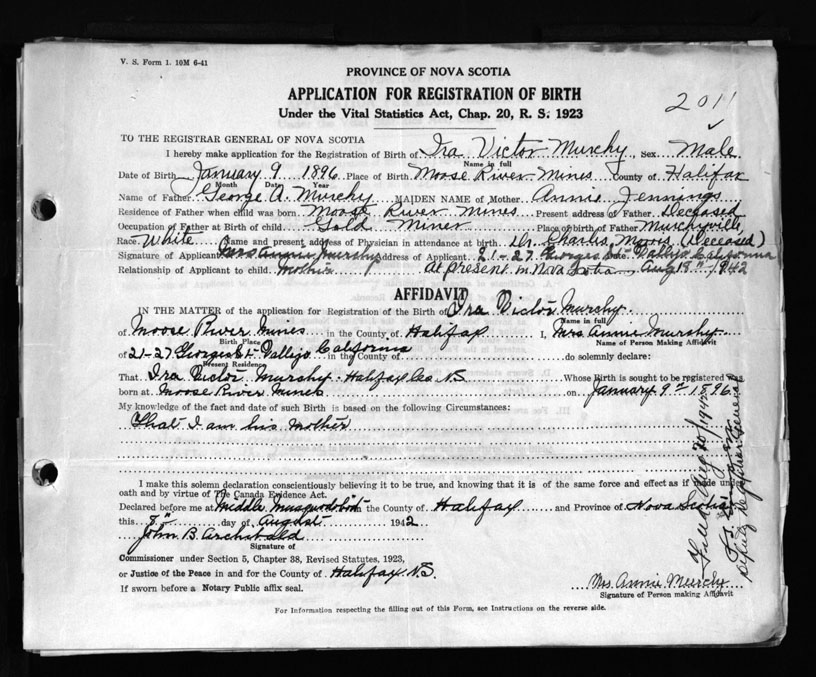 V. S. Form 1. 10M 6-41
PROVINCE OF NOVA SCOTIA
APPLICATION FOR REGISTRATION OF BIRTH
Under the Vital Statistics Act, Chap. 20, R. S. 1923
2011
TO THE REGISTRAR GENERAL OF NOVA SCOTIA
I hereby make application for the Registration of Birth of Ira Victor Murchy, Sex Male
Name in full
Date of Birth January 9 1896 Place of Birth Moose River Mines County of Halifax
Month Date Year
Name of Father George A. Murchy MAIDEN NAME of Mother Annie Jennings
Residence of Father when child was born Moose River Mines Present address of Father Deceased
Occupation of Father at Birth of child Gold Miner Place of birth of Father Murchyville
Race White Name and present address of Physician in attendance at birth Dr. Charles Morris (Deceased)
Signature of Applicant Mrs Annie Murchy Address of Applicant 21-27 Georgia St. Date Vallejo California
Relationship of Applicant to child Mother At present in Nova Scotia Aug 18th 1942
AFFIDAVIT
IN THE MATTER of the application for Registration of the Birth of Ira Victor Murchy
Name in full
of Moose River Mines in the County of Halifax I, Mrs Annie Murchy
Birth Place Name of Person Making Affidavit
of 21-27 Georgia St. Vallejo California in the County of do solemnly declare:
Present Residence
That Ira Victor Murchy Halifax Co. N.S. Whose Birth is sought to be registered was
born at Moose River Mines on January 9th 1896
My knowledge of the fact and date of such Birth is based on the following Circumstances:
That I am his Mother
I make this solemn declaration conscientiously believing it to be true, and knowing that it is of the same force and effect as if made under
oath and by virtue of The Canada Evidence Act.
Declared before me at Middle Musquodoboit in the County of Halifax and Province of Nova Scotia
this 8th day of August 1942
John B. Archibald
Signature of
Commissioner under Section 5, Chapter 38, Revised Statutes, 1923,
or Justice of the Peace in and for the County of Halifax N.S.
If sworn before a Notary Public affix seal.
Mrs. Annie Murchy
Signature of Person making Affidavit
For Information respecting the filling out of this Form, see Instructions on the reverse side.
Filed Aug 20/1942
Deputy Registrar General